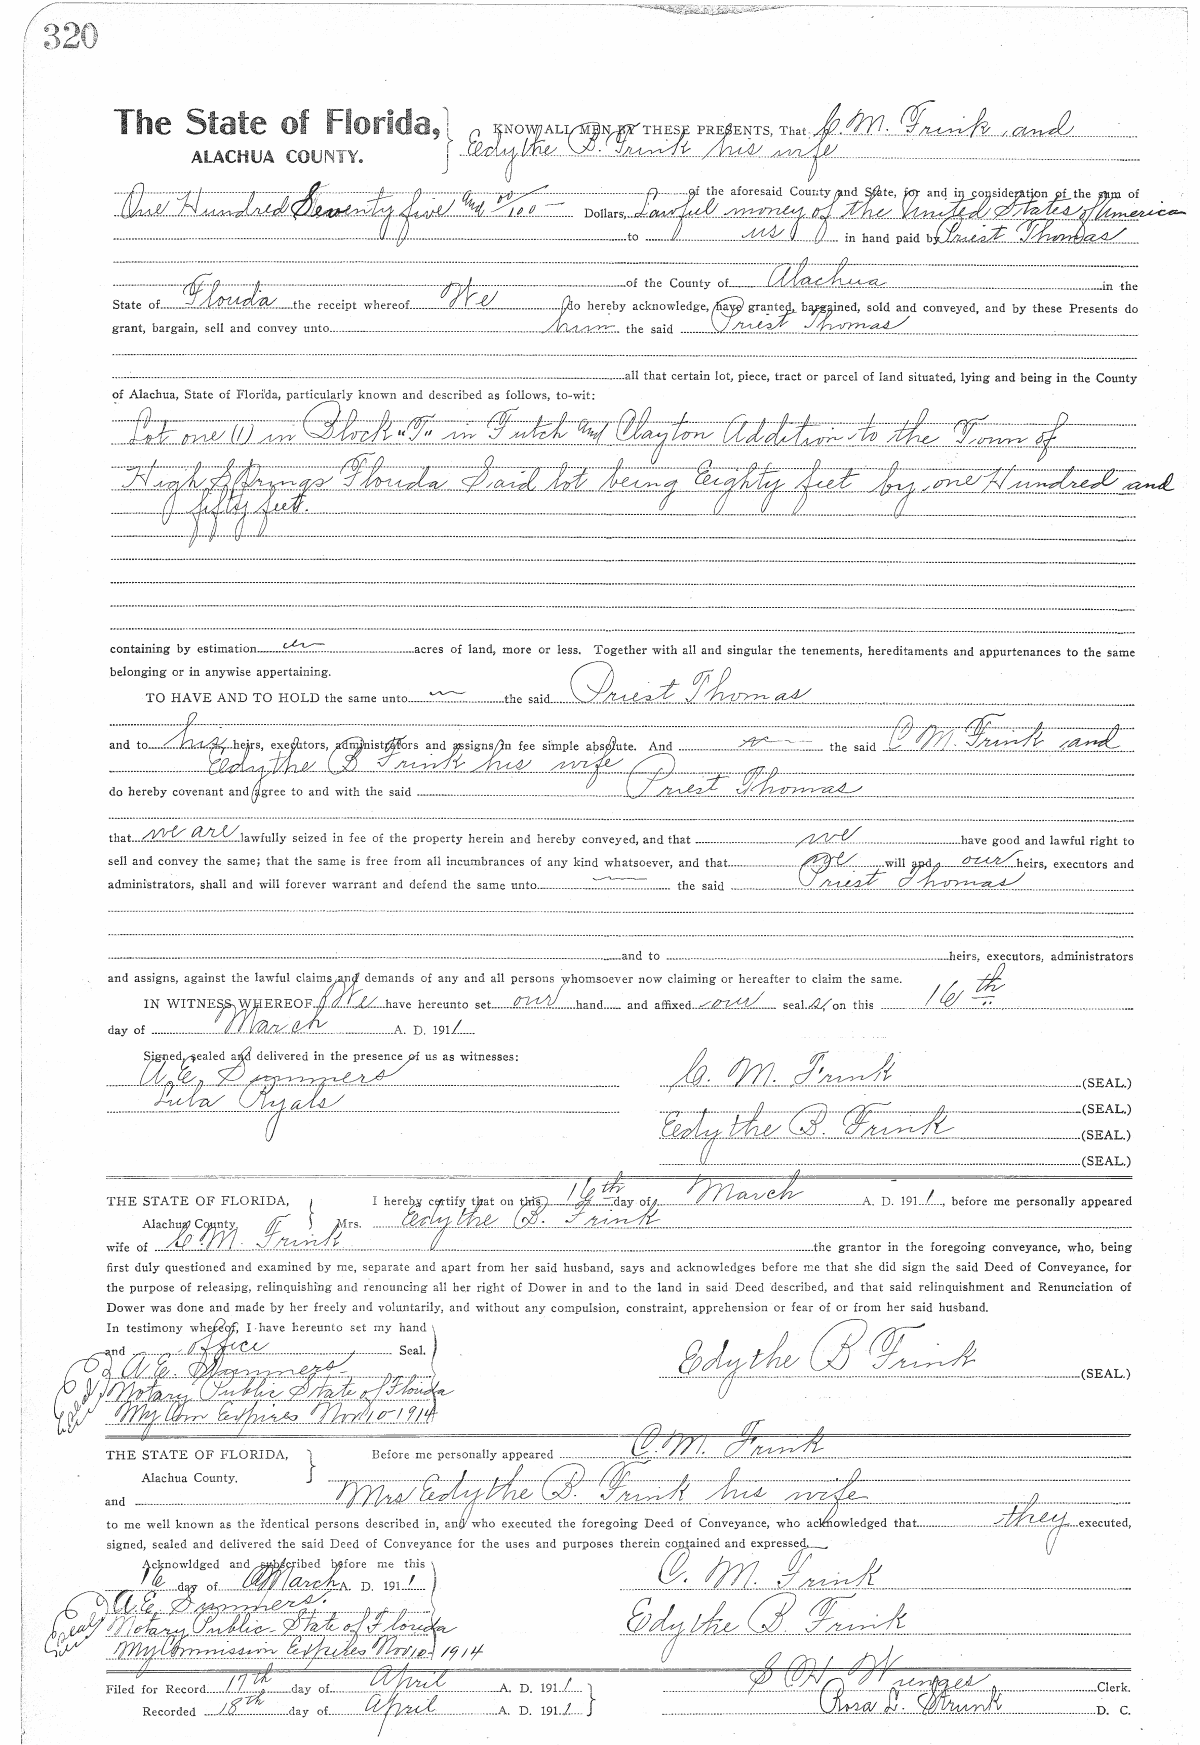 320
The State of Florida,
ALACHUA COUNTY.
KNOW ALL MEN BY THESE PRESENTS, That C. M. Frink and
Edythe B. Frink his wife
of the aforesaid County and State, for and in consideration of the sum of
One Hundred Seventy five and 00/100 — Dollars, Lawful money of the United States of America
to us in hand paid by Priest Thomas
of the County of Alachua in the
State of Florida the receipt whereof We do hereby acknowledge, have granted, bargained, sold and conveyed, and by these Presents do
grant, bargain, sell and convey unto him the said Priest Thomas
all that certain lot, piece, tract or parcel of land situated, lying and being in the County
of Alachua, State of Florida, particularly known and described as follows, to-wit:
Lot one (1) in Block "T" in Futch and Clayton Addition to the Town of
High Springs Florida Said lot being Eighty feet by one Hundred and
fifty feet.
containing by estimation acres of land, more or less. Together with all and singular the tenements, hereditaments and appurtenances to the same
belonging or in anywise appertaining.
TO HAVE AND TO HOLD the same unto the said Priest Thomas
and to his heirs, executors, administrators and assigns in fee simple absolute. And the said C M. Frink and
Edythe B Frink his wife
do hereby covenant and agree to and with the said Priest Thomas
that we are lawfully seized in fee of the property herein and hereby conveyed, and that we have good and lawful right to
sell and convey the same; that the same is free from all incumbrances of any kind whatsoever, and that we will and our heirs, executors and
administrators, shall and will forever warrant and defend the same unto the said Priest Thomas
and to heirs, executors, administrators
and assigns, against the lawful claims and demands of any and all persons whomsoever now claiming or hereafter to claim the same.
IN WITNESS WHEREOF, We have hereunto set our hand and affixed our seal s, on this 16th
day of March A. D. 1911
Signed, sealed and delivered in the presence of us as witnesses:
A. E. Summers
Lula Ryals
C. M. Frink (SEAL.)
(SEAL.)
Edythe B. Frink (SEAL.)
(SEAL.)
THE STATE OF FLORIDA, I hereby certify that on this 16th day of March A. D. 1911, before me personally appeared
Alachua County. Mrs. Edythe B. Frink
wife of C. M. Frink the grantor in the foregoing conveyance, who, being
first duly questioned and examined by me, separate and apart from her said husband, says and acknowledges before me that she did sign the said Deed of Conveyance, for
the purpose of releasing, relinquishing and renouncing all her right of Dower in and to the land in said Deed described, and that said relinquishment and Renunciation of
Dower was done and made by her freely and voluntarily, and without any compulsion, constraint, apprehension or fear of or from her said husband.
In testimony whereof, I have hereunto set my hand
and office Seal.
A. E. Summers
Notary Public State of Florida
My Com Expires Nov 10-1914
Edythe B Frink (SEAL.)
THE STATE OF FLORIDA, Before me personally appeared C. M. Frink
Alachua County.
and Mrs Edythe B. Frink his wife
to me well known as the identical persons described in, and who executed the foregoing Deed of Conveyance, who acknowledged that they executed,
signed, sealed and delivered the said Deed of Conveyance for the uses and purposes therein contained and expressed.
Acknowldged and subscribed before me this
16 day of March A. D. 1911
A. E. Summers.
Notary Public - State of Florida
My Commission Expires Nov 10- 1914
C. M. Frink
Edythe B. Frink
Filed for Record 17th day of April A. D. 1911
Recorded 18th day of April A. D. 1911
S H Wienges Clerk.
Rosa L. Strunk D. C.